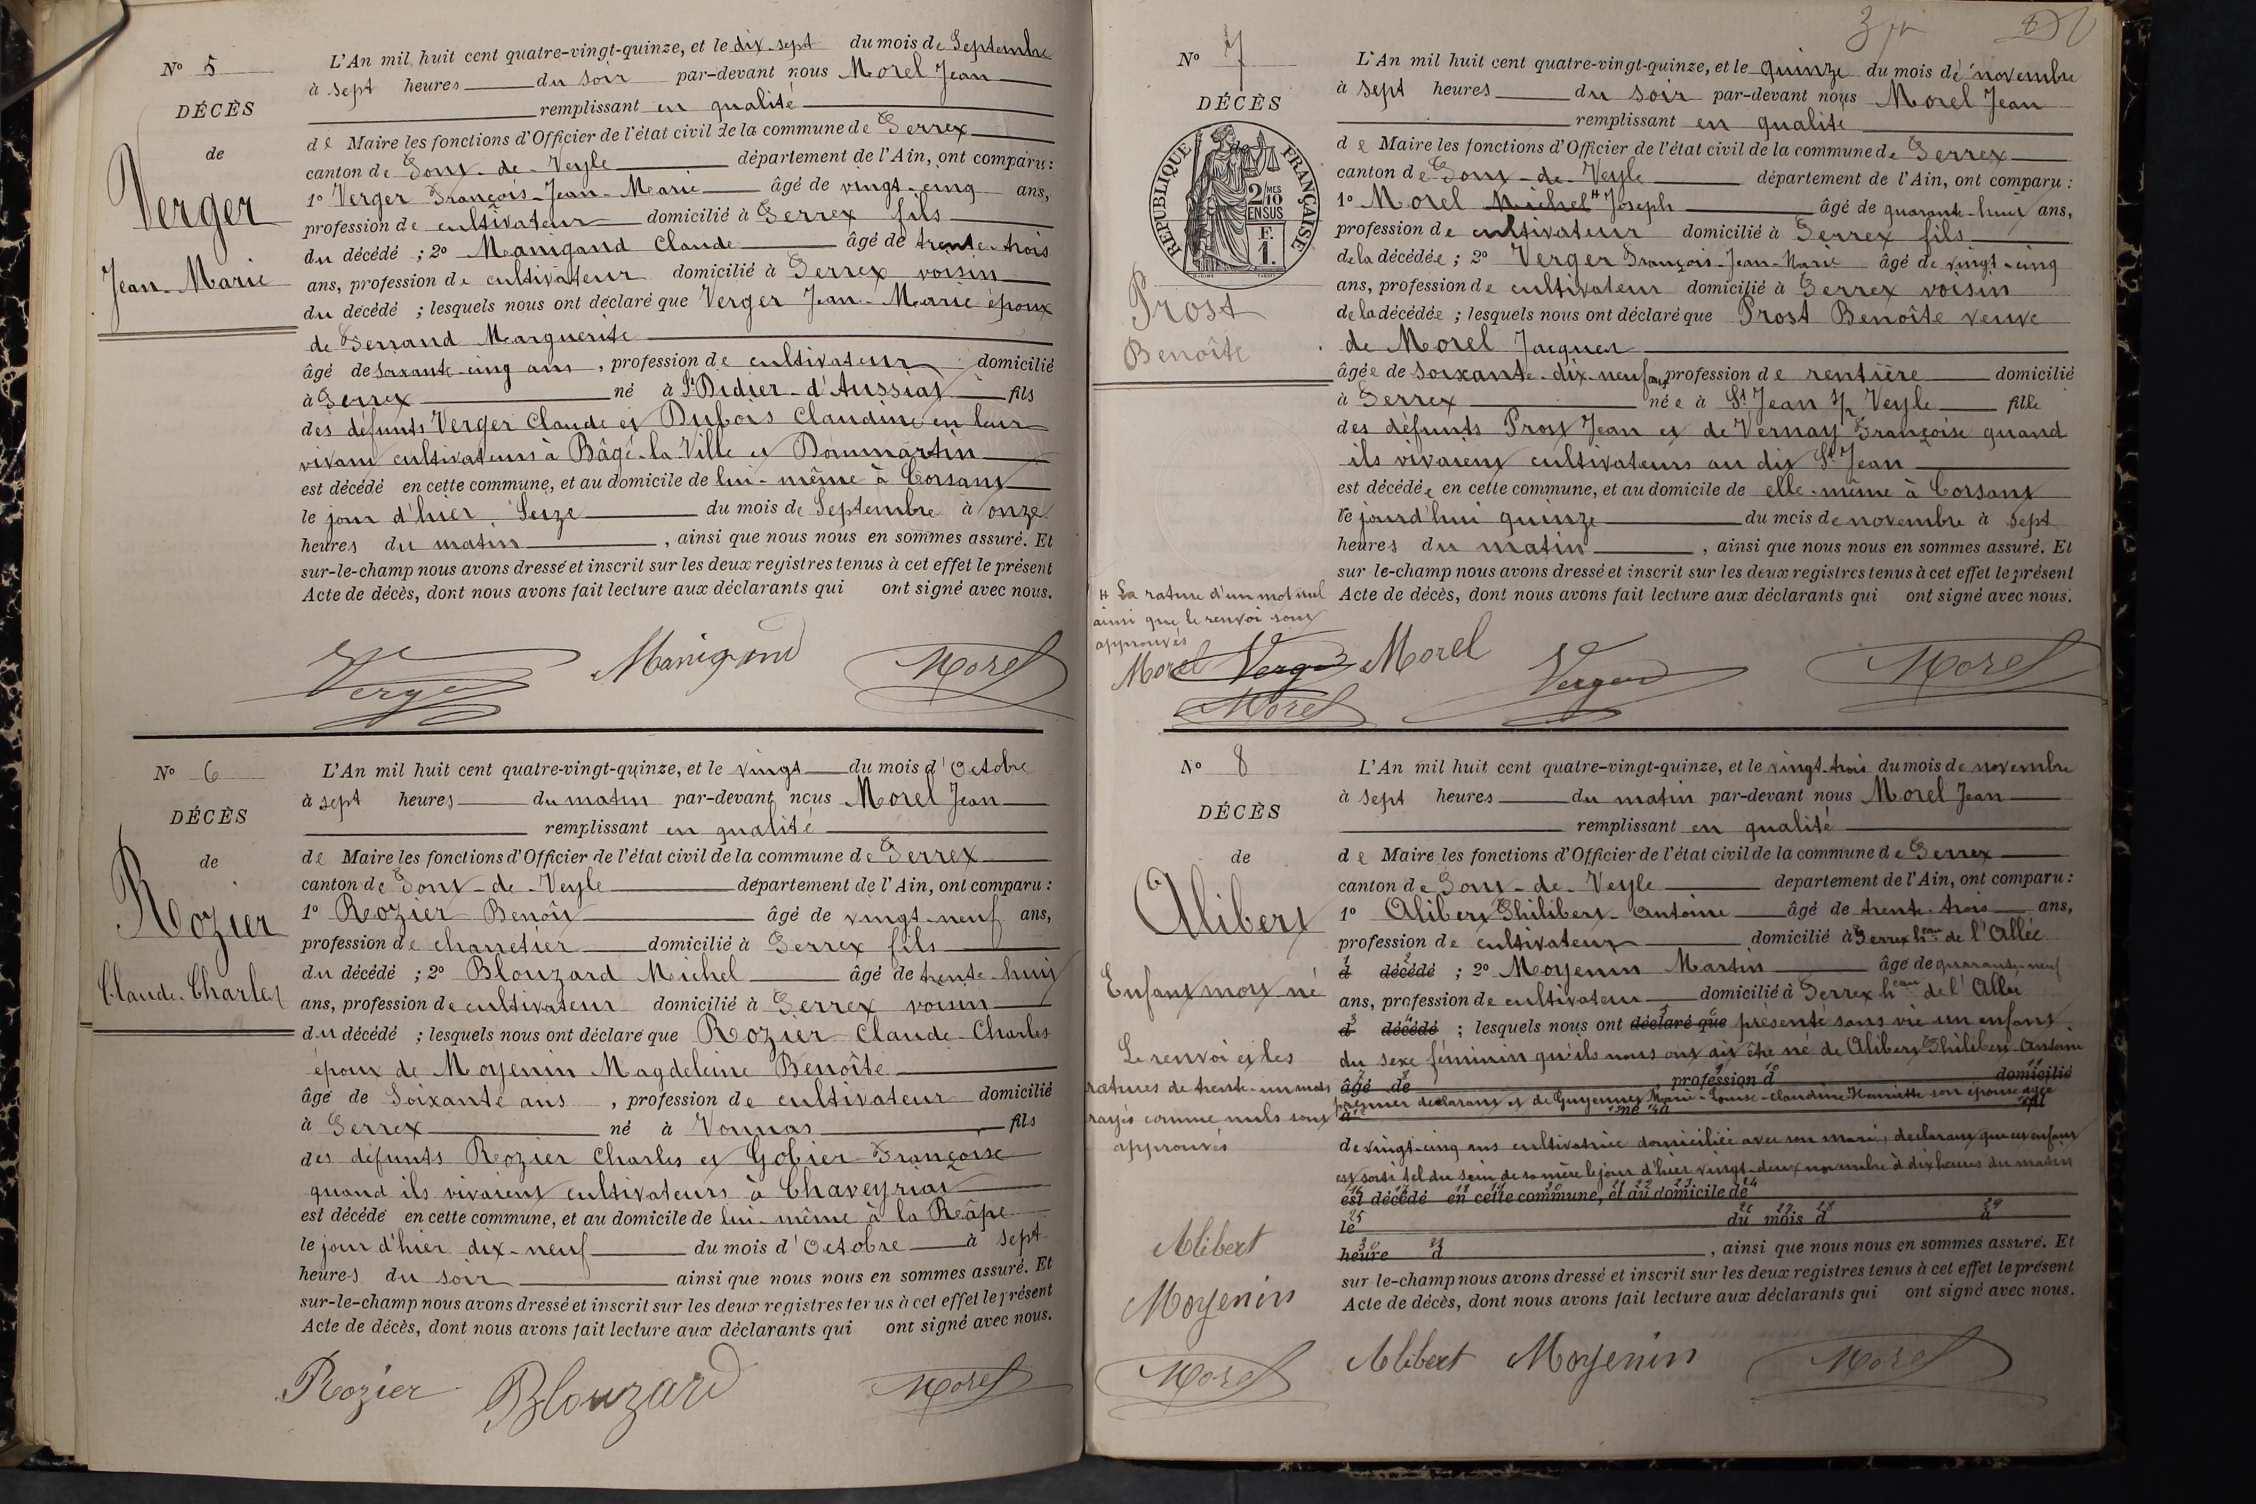 N° 5
DÉCÈS
de
Verger
Jean-Marie
L'An mil huit cent quatre-vingt-quinze, et le dix-sept du mois de Septembre
à sept heures du soir par-devant nous Morel Jean
remplissant en qualité
de Maire les fonctions d'Officier de l'état civil de la commune de Perrex
canton de Pont-de-Veyle département de l'Ain, ont comparu :
1° Verger François-Jean-Marie âgé de vingt-cinq ans,
profession de cultivateur domicilié à Perrex fils
du décédé ; 2° Manigand Claude âgé de trente-trois
ans, profession de cultivateur domicilié à Perrex voisin
du décédé ; lesquels nous ont déclaré que Verger Jean-Marie époux
de Ferrand Marguerite
âgé de soixante-cinq ans, profession de cultivateur domicilié
à Perrex né à St Didier-d'Aussiat fils
des défunts Verger Claude et Dubois Claudine en leur
vivant cultivateurs à Bâgé-la-Ville et Dommartin
est décédé en cette commune, et au domicile de lui-même à Corsant
le jour d'hier Seize du mois de Septembre à onze
heures du matin, ainsi que nous nous en sommes assuré. Et
sur-le-champ nous avons dressé et inscrit sur les deux registres tenus à cet effet le présent
Acte de décès, dont nous avons fait lecture aux déclarants qui ont signé avec nous.
Verger Manigand Morel
N° 6
DÉCÈS
de
Rozier
Claude-Charles
L'An mil huit cent quatre-vingt-quinze, et le vingt du mois d'Octobre
à sept heures du matin par-devant nous Morel Jean
remplissant en qualité
de Maire les fonctions d'Officier de l'état civil de la commune de Perrex
canton de Pont-de-Veyle département de l'Ain, ont comparu :
1° Rozier Benoît âgé de vingt-neuf ans,
profession de charretier domicilié à Perrex fils
du décédé ; 2° Blouzard Michel âgé de trente-huit
ans, profession de cultivateur domicilié à Perrex voisin
du décédé ; lesquels nous ont déclaré que Rozier Claude-Charles
époux de Moyenin Magdeleine Benoîte
âgé de Soixante ans, profession de cultivateur domicilié
à Perrex né à Vonnas fils
des défunts Rozier Charles et Gobier Françoise
quand ils vivaient cultivateurs à Chaveyriat
est décédé en cette commune, et au domicile de lui-même à la Reâpe
le jour d'hier dix-neuf du mois d'Octobre à sept
heures du soir ainsi que nous nous en sommes assuré. Et
sur-le-champ nous avons dressé et inscrit sur les deux registres tenus à cet effet le présent
Acte de décès, dont nous avons fait lecture aux déclarants qui ont signé avec nous.
Rozier Blouzard Morel
N° 7
DÉCÈS
de
RÉPUBLIQUE FRANÇAISE
2/10 MES
EN SUS
F.
1.
Prost
Benoîte
L'An mil huit cent quatre-vingt-quinze, et le quinze du mois de novembre
à sept heures du soir par-devant nous Morel Jean
remplissant en qualité
de Maire les fonctions d'Officier de l'état civil de la commune de Perrex
canton de Pont-de-Veyle département de l'Ain, ont comparu :
1° Morel Michel # Joseph âgé de quarante-huit ans,
profession de cultivateur domicilié à Perrex fils
de la décédée ; 2° Verger François-Jean-Marie âgé de vingt-cinq
ans, profession de cultivateur domicilié à Perrex voisin
de la décédée ; lesquels nous ont déclaré que Prost Benoîte veuve
de Morel Jacques
âgée de soixante-dix-neuf ans profession de rentière domicilié
à Perrex née à St Jean s/ Veyle fille
des défunts Prost Jean et de Vernay Françoise quand
ils vivaient cultivateurs au dit St Jean
est décédée en cette commune, et au domicile de elle-même à Corsant
le jourd'hui quinze du mois de novembre à sept
heures du matin, ainsi que nous nous en sommes assuré. Et
sur-le-champ nous avons dressé et inscrit sur les deux registres tenus à cet effet le présent
Acte de décès, dont nous avons fait lecture aux déclarants qui ont signé avec nous.
# La rature d'un mot nul
ainsi que le renvoi sont
approuvés
Morel Verger Morel Verger Morel
Morel
N° 8
DÉCÈS
de
Alibert
Enfant mort né
L'An mil huit cent quatre-vingt-quinze, et le vingt-trois du mois de novembre
à sept heures du matin par-devant nous Morel Jean
remplissant en qualité
de Maire les fonctions d'Officier de l'état civil de la commune de Perrex
canton de Pont-de-Veyle département de l'Ain, ont comparu :
1° Alibert Philibert-Antoine âgé de trente-trois ans,
profession de cultivateur domicilié à Perrex heau de l'Allée
d décédé ; 2° Moyenin Martin âgé de quarante-neuf
ans, profession de cultivateur domicilié à Perrex heau de l'Allée
d décédé ; lesquels nous ont déclaré que présenté sans vie un enfant
du sexe féminin qu'ils nous ont dit être né de Alibert Philibert Antoine
âgé de , profession d domicilié
premier déclarant et de Guyennet Marie-Louise-Claudine Henriette son épouse âgée
à né à fil
de vingt-cinq ans cultivatrice domiciliée avec son mari, déclarant que cet enfant
est sorti tel du sein de sa mère le jour d'hier vingt-deux novembre à dix heures du matin
est décédé en cette commune, et au domicile de
le du mois d à
heure d , ainsi que nous nous en sommes assuré. Et
sur-le-champ nous avons dressé et inscrit sur les deux registres tenus à cet effet le présent
Acte de décès, dont nous avons fait lecture aux déclarants qui ont signé avec nous.
Le renvoi et les
ratures de trente-un mots
rayés comme nuls sont
approuvés
Alibert
Moyenin
Morel
Alibert Moyenin Morel